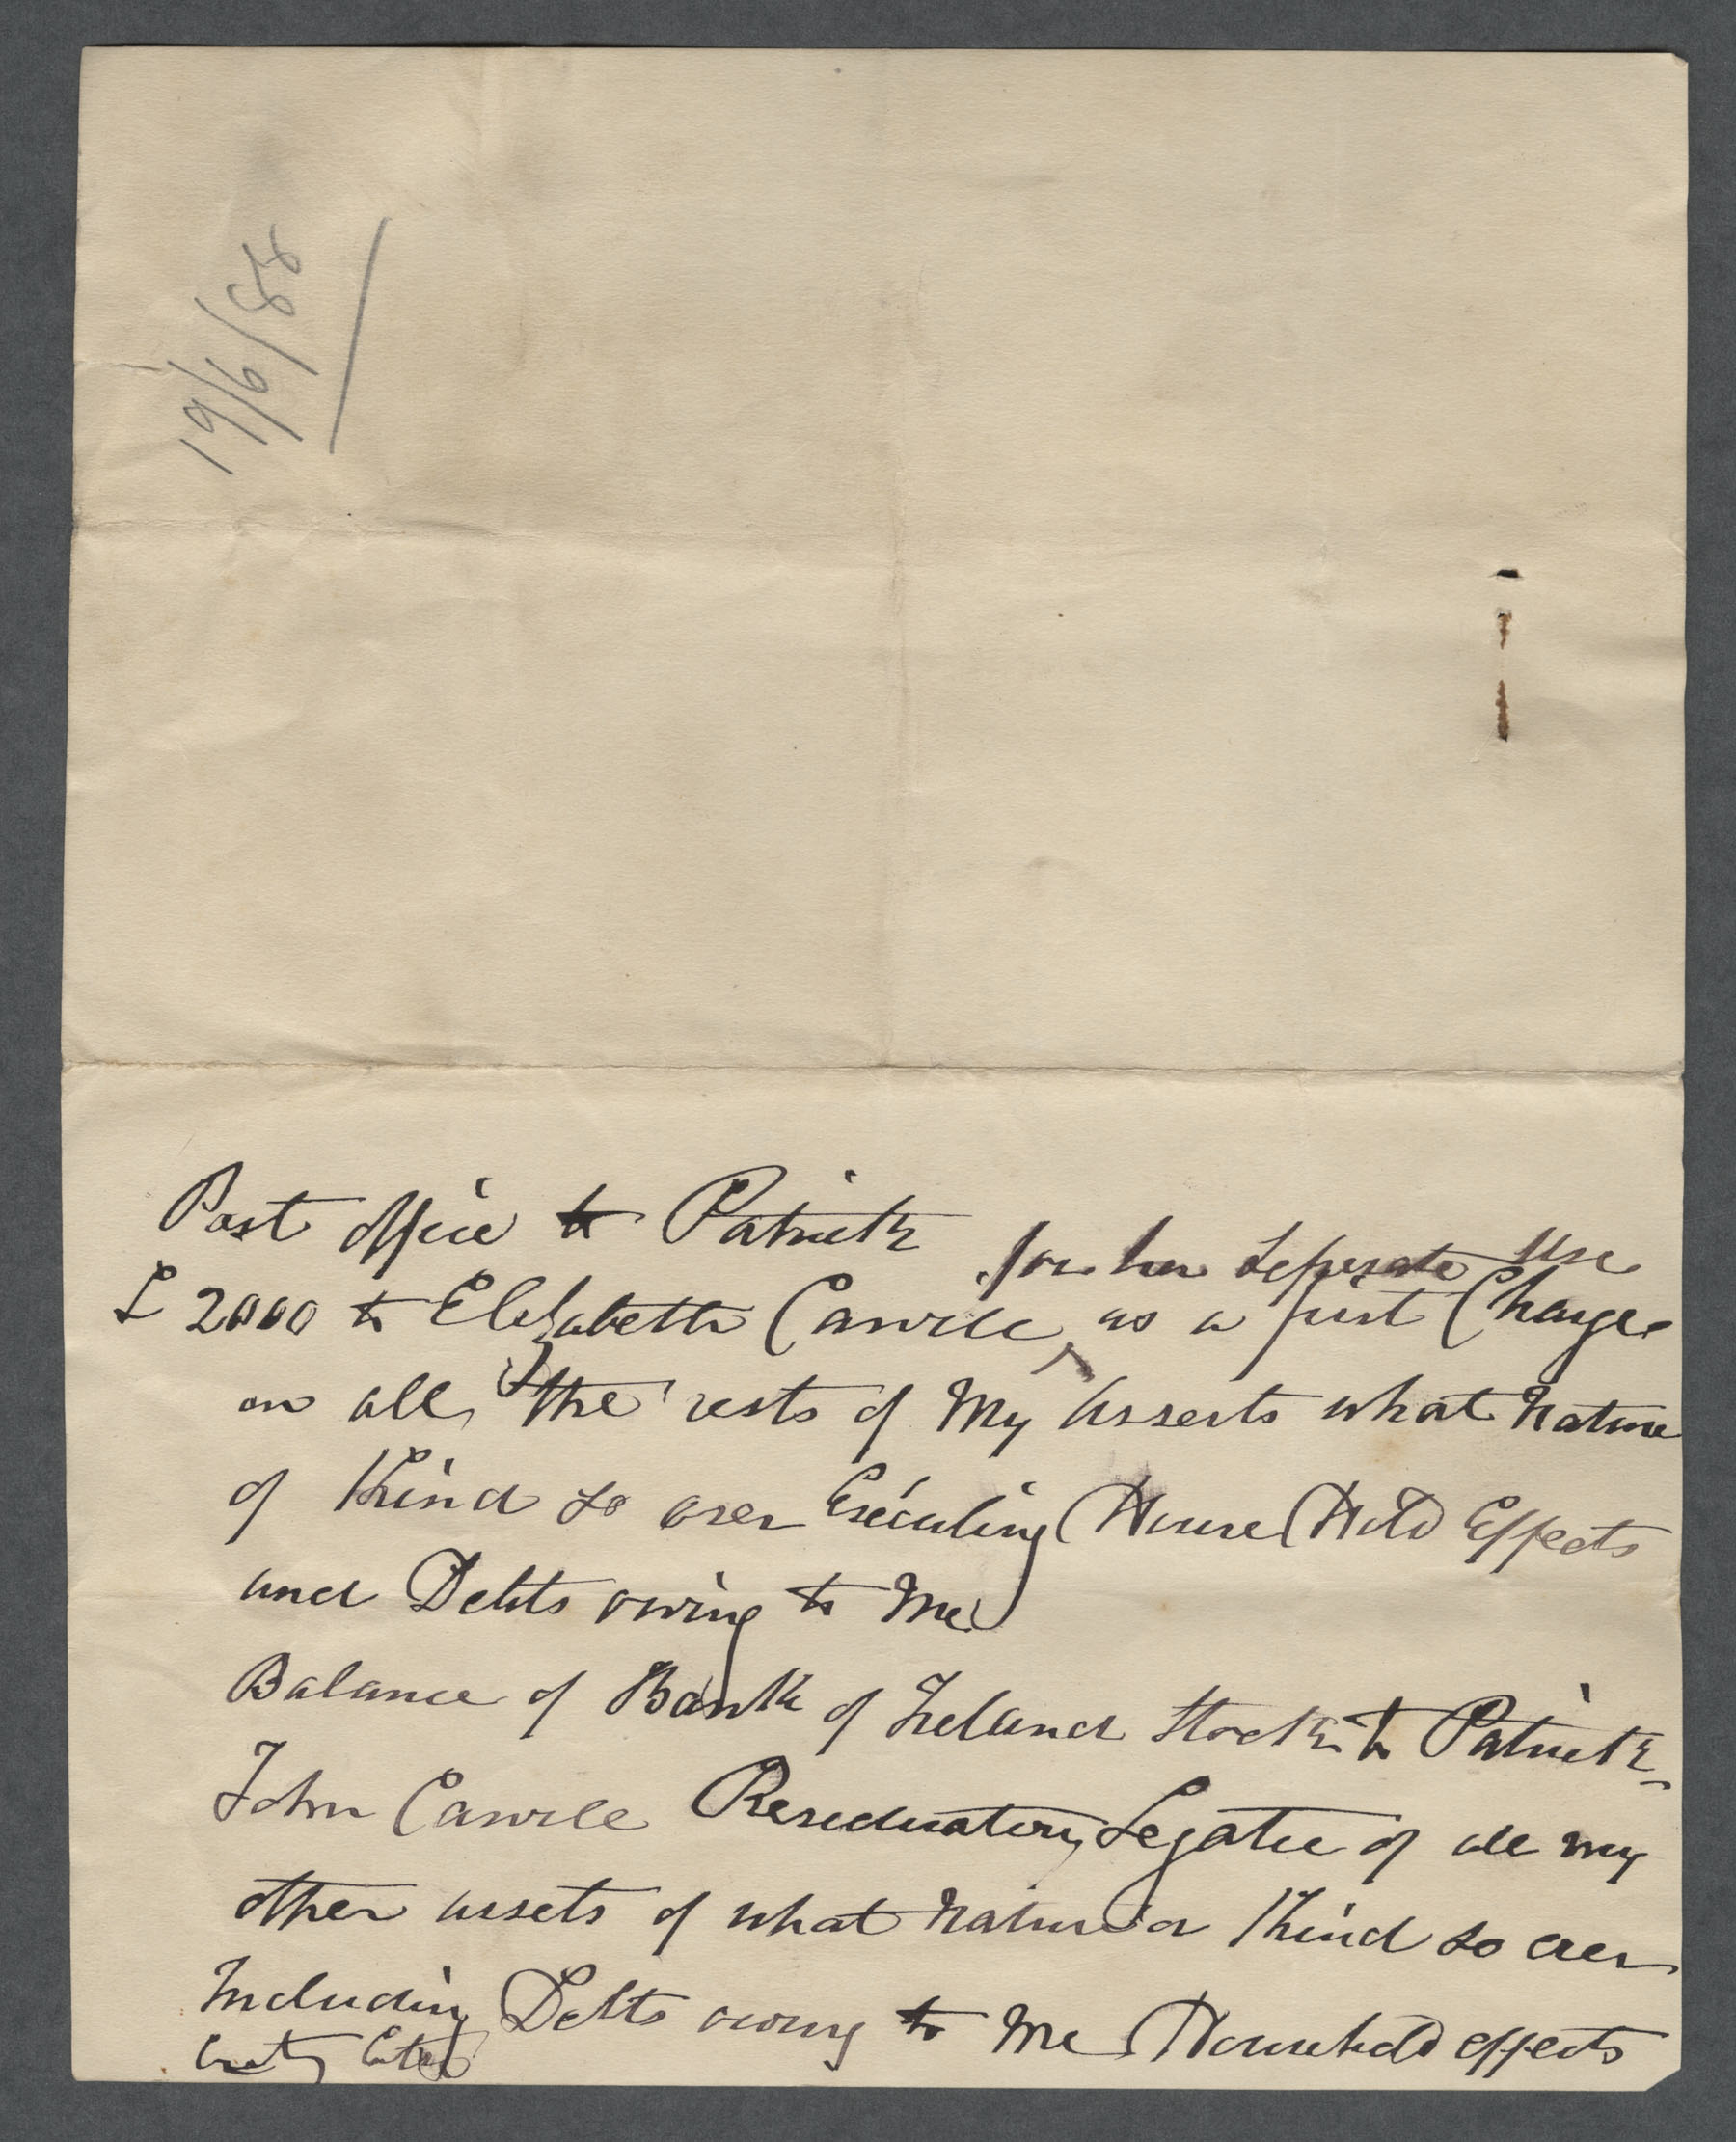 19/6/88
Post office to Patrick
for her Seperate Use
£ 2000 to Elizabeth Carvill as a first Charge
on all the rests of My Asserts what Nature
of Kind so over Excuding House Hold Effects
and Debts owing to Me
Balance of Bank of Ireland Stock to Patrick
John Carvill Reseduatory Legatee of all my
other assets of what Nature or Kind so ever
Including Debts owing to Me Household effects